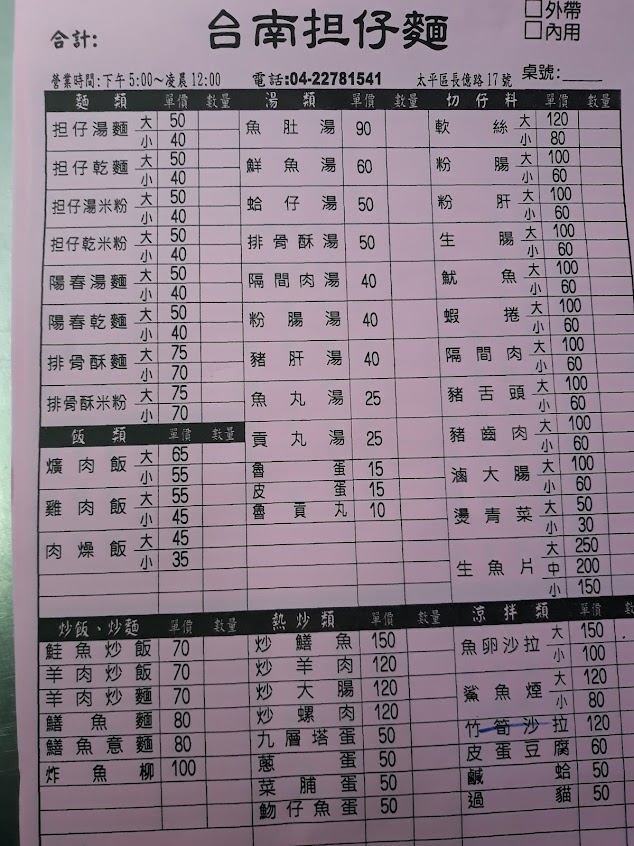 台南担仔麵
□外帶
□內用
合計:
營業時間:下午5:00～凌晨12:00 電話:04-22781541 太平區長億路17號 桌號:
麵類 單價 數量
担仔湯麵 大 50
小 40
担仔乾麵 大 50
小 40
担仔湯米粉 大 50
小 40
担仔乾米粉 大 50
小 40
陽春湯麵 大 50
小 40
陽春乾麵 大 50
小 40
排骨酥麵 大 75
小 70
排骨酥米粉 大 75
小 70
飯類 單價 數量
爌肉飯 大 65
小 55
雞肉飯 大 55
小 45
肉燥飯 大 45
小 35
湯類 單價 數量
魚肚湯 90
鮮魚湯 60
蛤仔湯 50
排骨酥湯 50
隔間肉湯 40
粉腸湯 40
豬肝湯 40
魚丸湯 25
貢丸湯 25
魯蛋 15
皮蛋 15
魯貢丸 10
切仔料 單價 數量
軟絲 大 120
小 80
粉腸 大 100
小 60
粉肝 大 100
小 60
生腸 大 100
小 60
魷魚 大 100
小 60
蝦捲 大 100
小 60
隔間肉 大 100
小 60
豬舌頭 大 100
小 60
豬齒肉 大 100
小 60
滷大腸 大 100
小 60
燙青菜 大 50
小 30
生魚片 大 250
中 200
小 150
炒飯、炒麵 單價 數量
鮭魚炒飯 70
羊肉炒飯 70
羊肉炒麵 70
鱔魚麵 80
鱔魚意麵 80
炸魚柳 100
熱炒類 單價 數量
炒鱔魚 150
炒羊肉 120
炒大腸 120
炒螺肉 120
九層塔蛋 50
蔥蛋 50
菜脯蛋 50
魩仔魚蛋 50
涼拌類 單價 數
魚卵沙拉 大 150
小 100
鯊魚煙 大 120
小 80
竹筍沙拉 120
皮蛋豆腐 60
鹹蛤 50
過貓 50